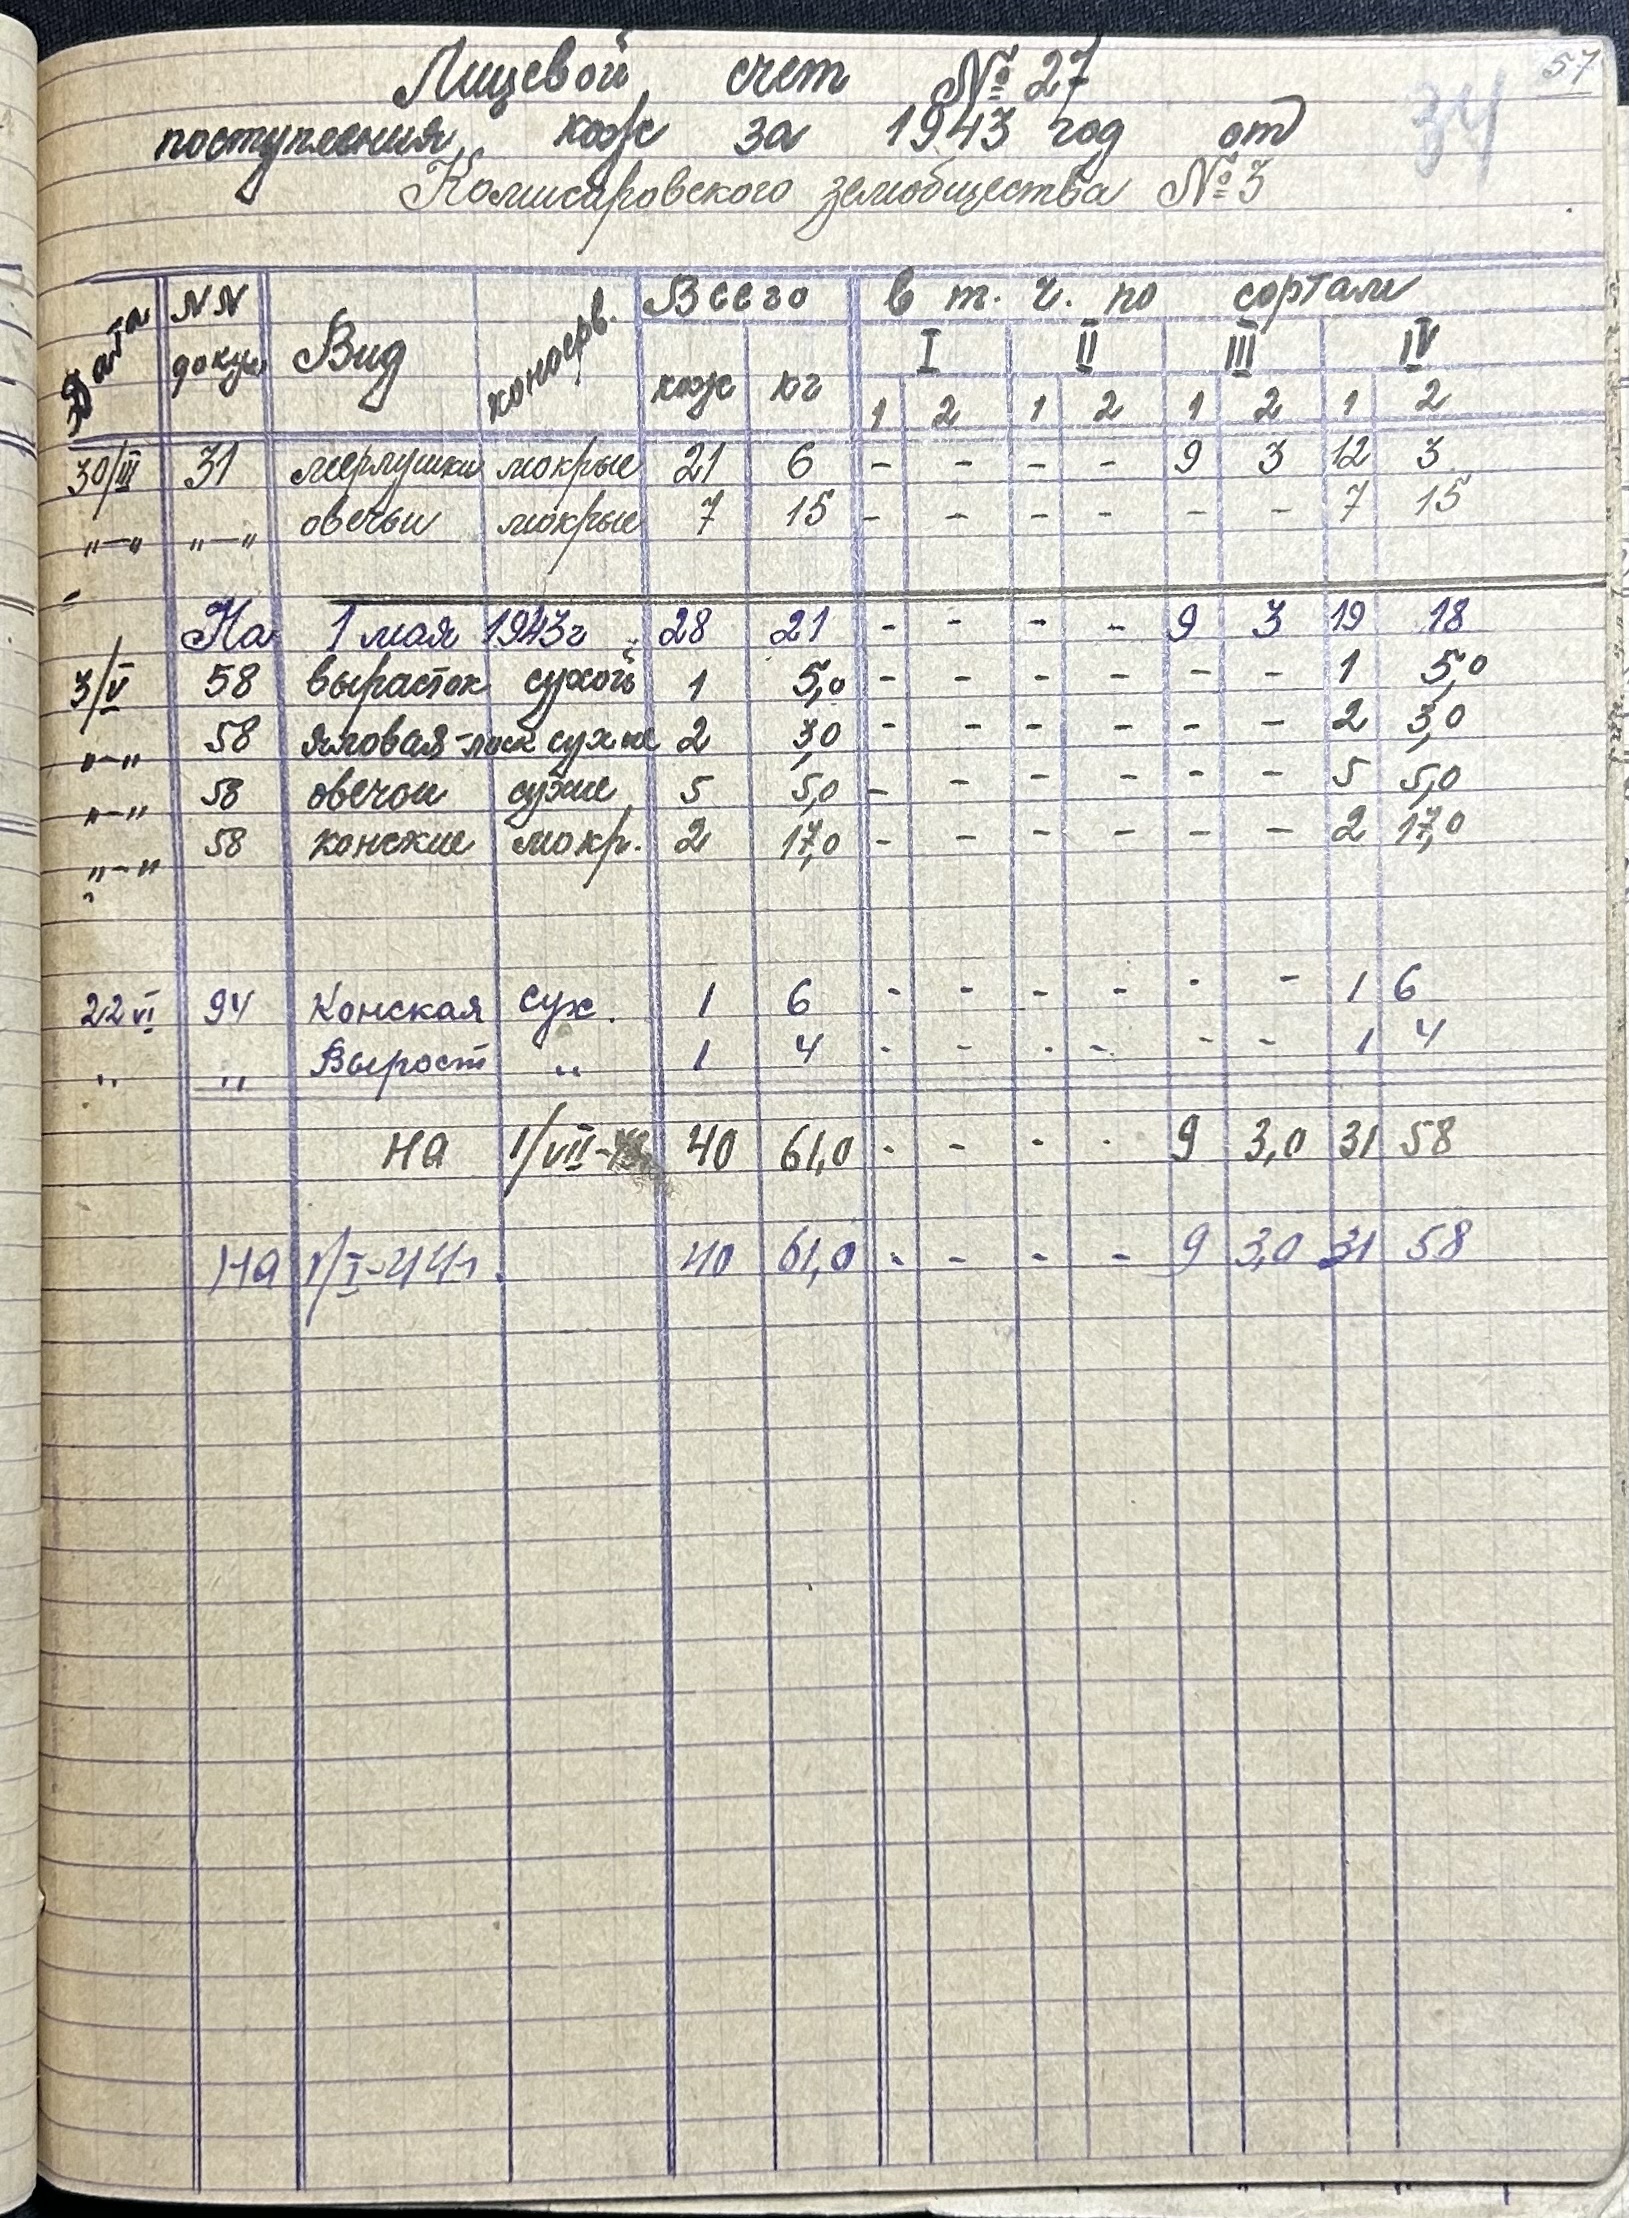 57
34
Лицевой счет № 27
поступления кож за 1943 год от
Комисаровского земобщества № 3
Дата NN докум Вид консерв. Всего в т. ч. по сортам
кож кг I II III IV
1 2 1 2 1 2 1 2
30/III 31 мерлушки мокрые 21 6 - - - - 9 3 12 3
"—" "—" овечьи мокрые 7 15 - - - - - - 7 15
На 1 мая 1943г 28 21 - - - - 9 3 19 18
3/V 58 вырасток сухой 1 5,0 - - - - - - 1 5,0
"—" 58 яловая - сухие 2 3,0 - - - - - - 2 3,0
"—" 58 овечьи сухие 5 5,0 - - - - - - 5 5,0
"—" 58 конские мокр. 2 17,0 - - - - - - 2 17,0
22 VI 94 Конская сух. 1 6 - - - - - - 1 6
" " Вырост " 1 4 - - - - - - 1 4
на 1/VII- 40 61,0 - - - - 9 3,0 31 58
на 1/I-44г. 40 61,0 - - - - 9 3,0 31 58